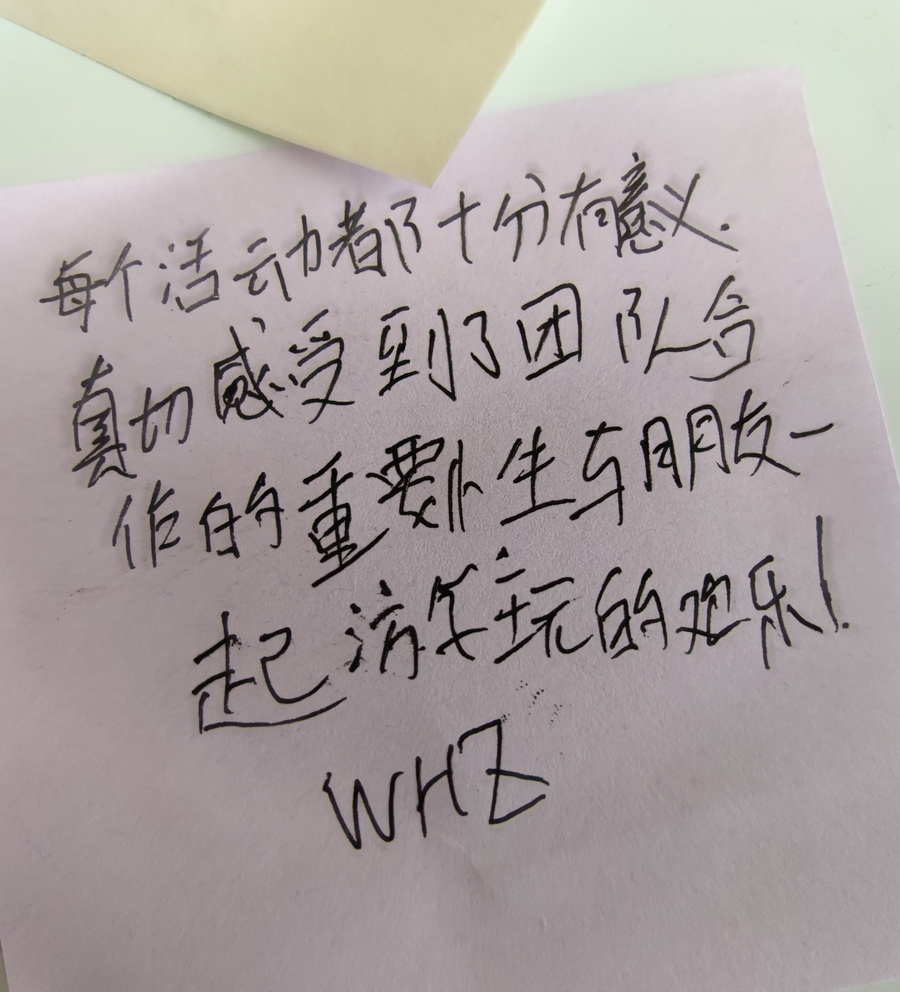 每个活动都十分有意义.
真切感受到了团队合
作的重要性与朋友一
起游玩的欢乐!
WHZ